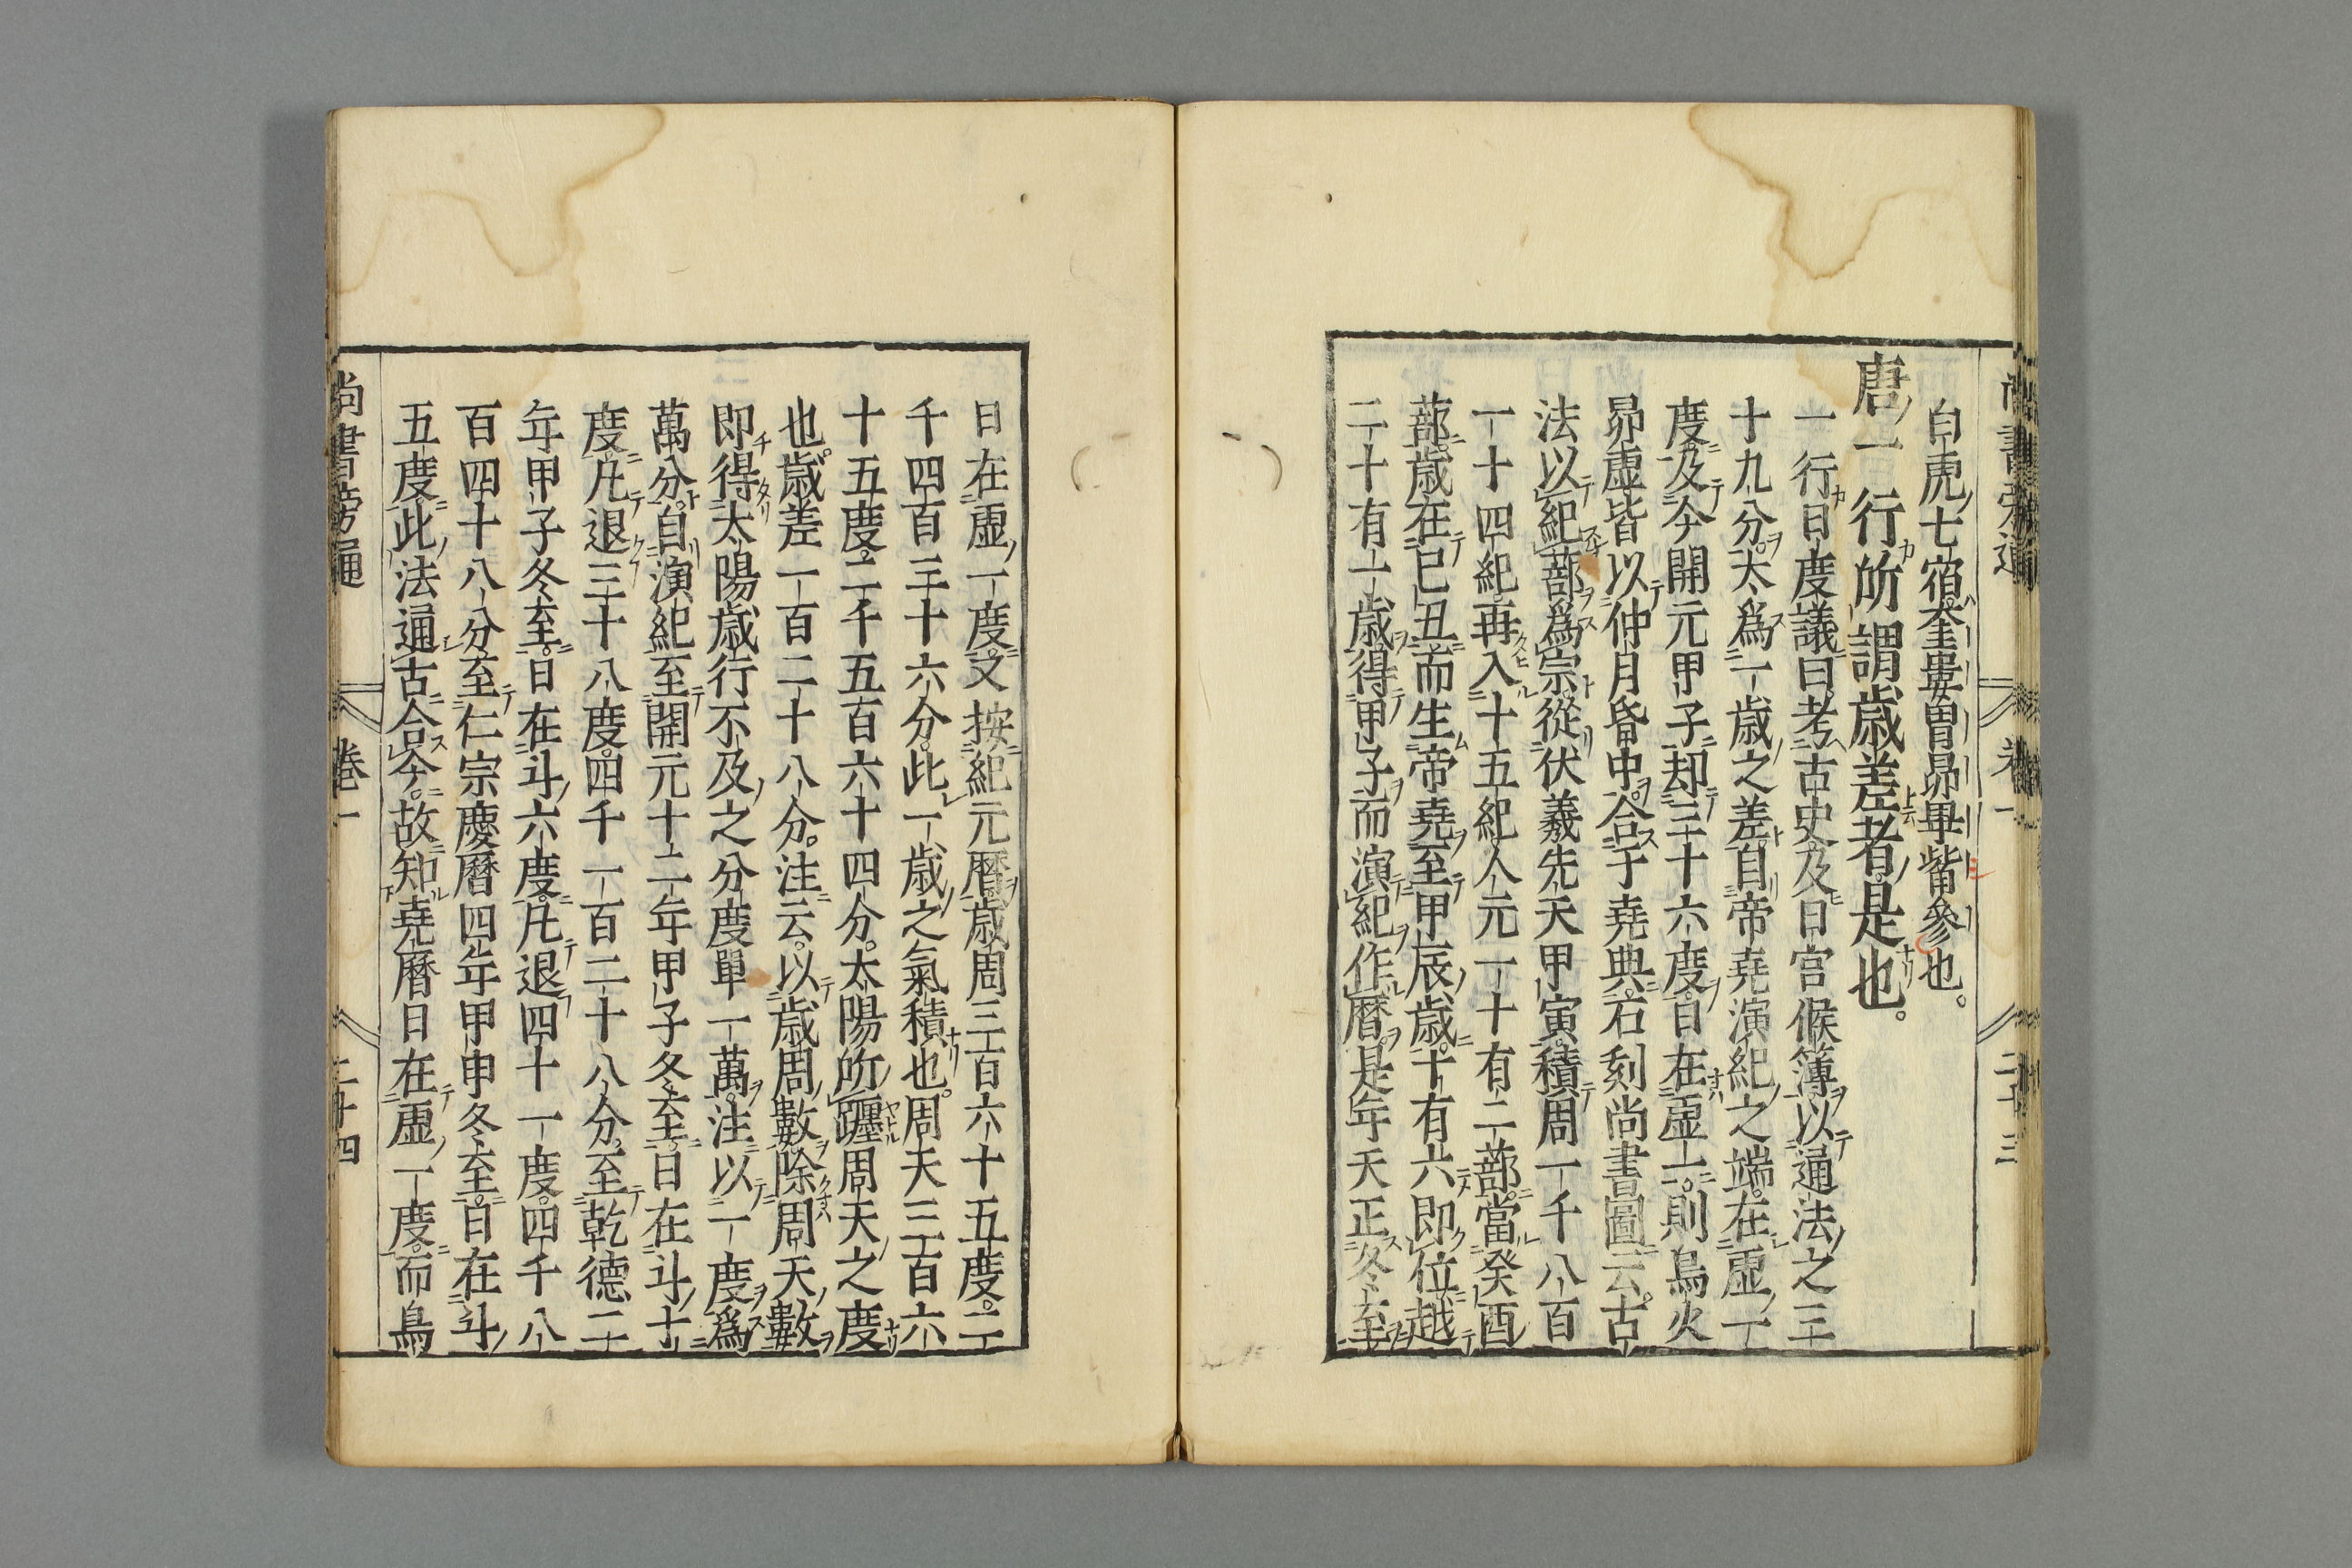 尚書旁通 卷一 二十三
白虎七宿奎婁胃昴畢觜參也。
唐一行所謂歲差者是也。
一行日度議曰考古史及日官候簿以通法之三
十九分太爲一歲之差自帝堯演紀之端在虛一
度及今開元甲子却三十六度日在虛一則鳥火
昴虛皆以仲月昏中合于堯典石刻尚書圖云古
法以紀蔀爲宗從伏羲先天甲寅積周一千八百
一十四紀再入十五紀人元一十有二蔀當癸酉
蔀歲在巳丑而生帝堯至甲辰歲十有六即位越
二十有一歲得甲子而演紀作曆是年天正冬至
日在虛一度又按紀元曆歲周三百六十五度二
千四百三十六分此一歲之氣積也周天三百六
十五度二千五百六十四分太陽所躔周天之度
也歲差一百二十八分注云以歲周數除周天數
即得太陽歲行不及之分度單一萬注以一度爲
萬分自演紀至開元十二年甲子冬至日在斗十
度凡退三十八度四千一百二十八分至乾德二
年甲子冬至日在斗六度凡退四十一度四千八
百四十八分至仁宗慶曆四年甲申冬至日在斗
五度此法通古合今故知堯曆日在虛一度而鳥
尚書旁通 卷一 二十四